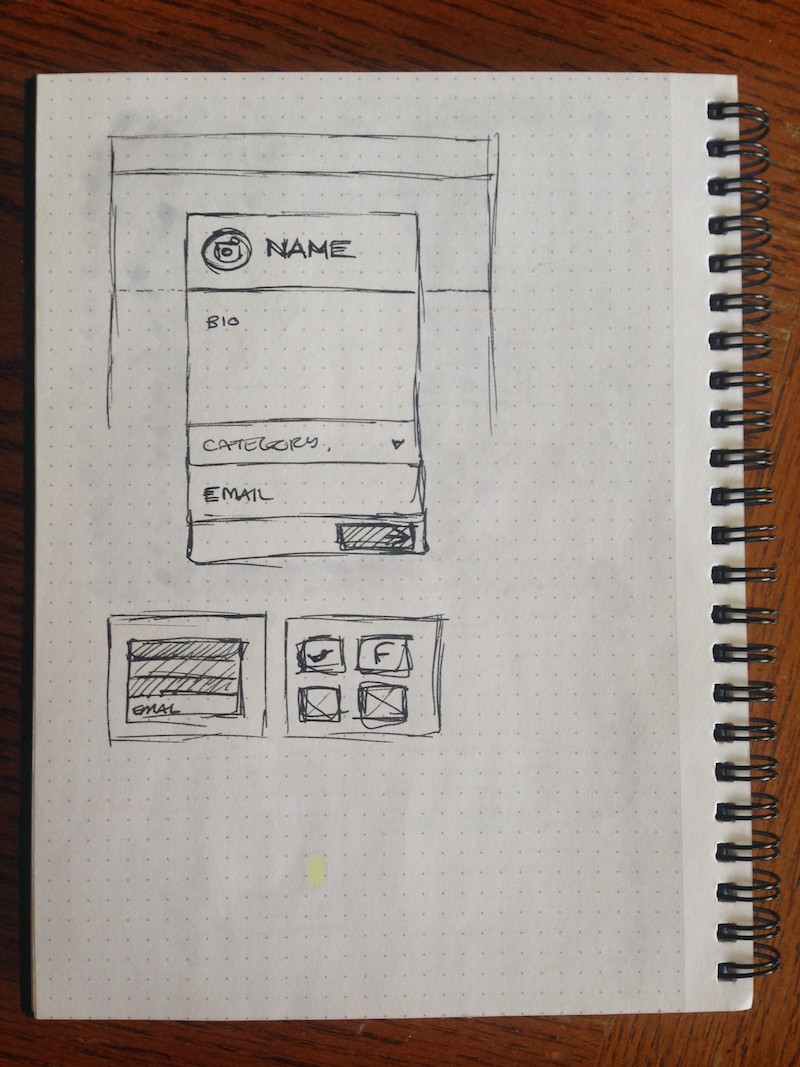 NAME
BIO
CATEGORY.
EMAIL
EMAIL
F